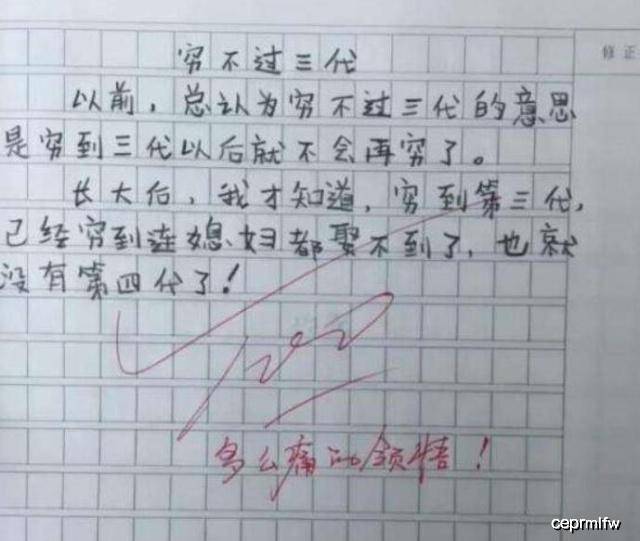 修正
穷不过三代
以前，总认为穷不过三代的意思
是穷到三代以后就不会再穷了。
长大后，我才知道，穷到第三代，
已经穷到连媳妇都娶不到了，也就
没有第四代了！
100
多么痛的领悟！
ceprmlfw